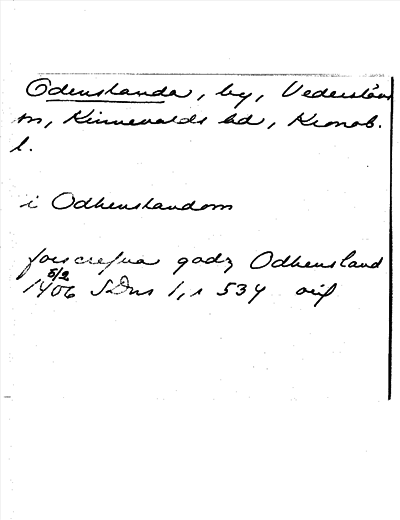 Odenslanda, by, Vederslövs
sn, Kinnevalds hd, Kronob.
l.
i Odhenslandom
forscrefna godz Odhensland
1406 5/2 SDns 1, s 534 orig